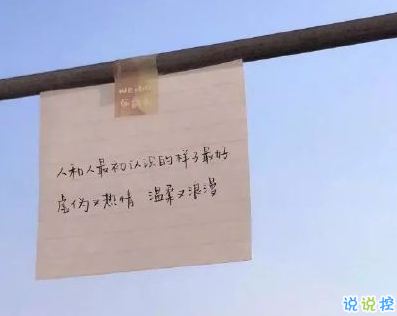 weibo
人和人最初认识的样子最好
虚伪又热情 温柔又浪漫
说说控